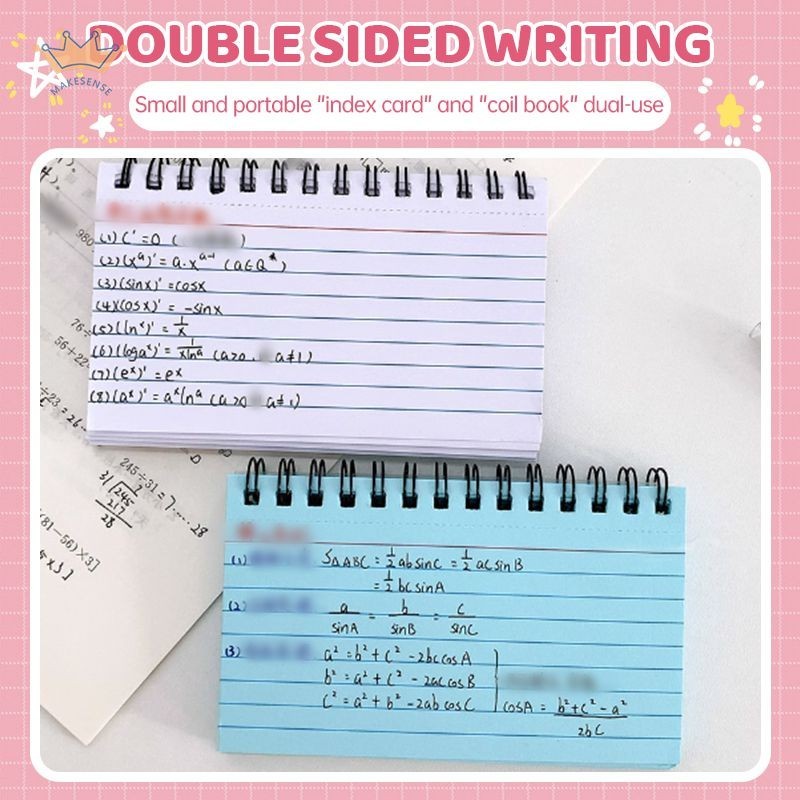 DOUBLE SIDED WRITING
MAKESENSE
Small and portable "index card" and "coil book" dual-use
(1) C' = 0 ( )
(2) (x^a)' = a·x^(a-1) (a∈Q*)
(3) (sinx)' = cosx
(4) (cosx)' = -sinx
(5) (ln^x)' = 1/x
(6) (loga^x)' = 1/(xln^a) (a>0, a≠1)
(7) (e^x)' = e^x
(8) (a^x)' = a^x ln^a (a>0 a≠1)
245÷31=7……28
31 245
217
28
(81-56)×3]
(1) S△ABC = 1/2 ab sinC = 1/2 ac sinB
= 1/2 bc sinA
(2) a/sinA = b/sinB = c/sinC
(3) a² = b² + c² - 2bc cosA
b² = a² + c² - 2ac cosB
c² = a² + b² - 2ab cosC
cosA = (b² + c² - a²)/2bc